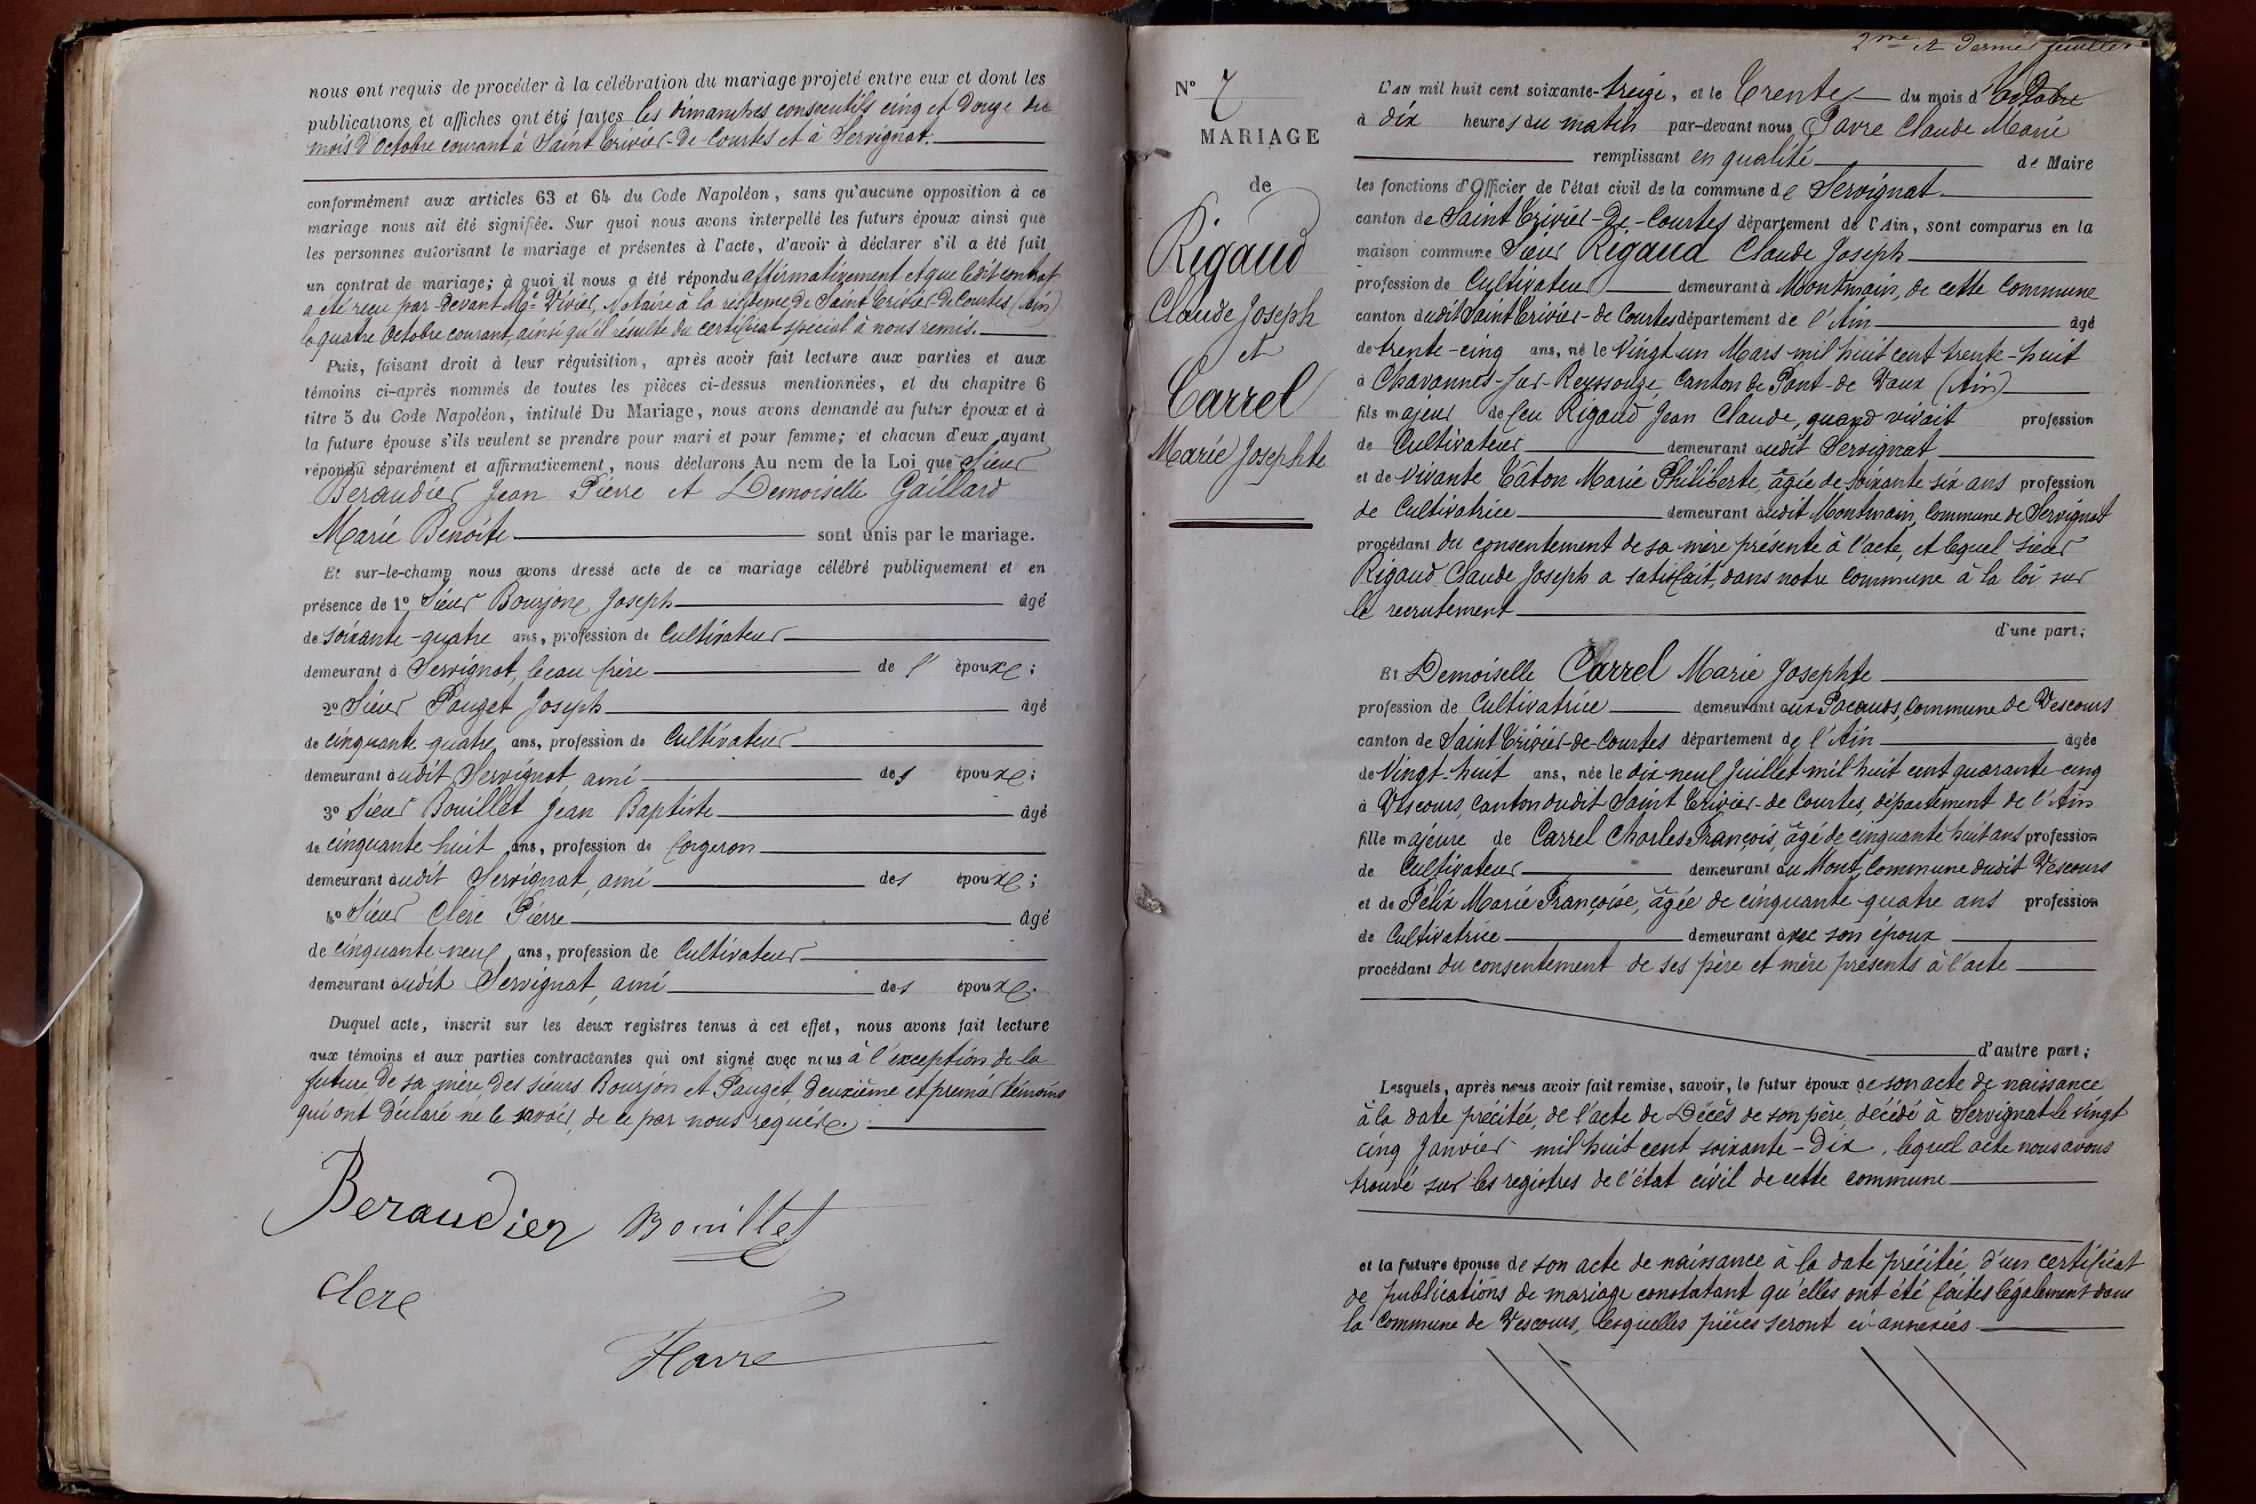 nous ont requis de procéder à la célébration du mariage projeté entre eux et dont les
publications et affiches ont été faites les dimanches consecutifs cinq et Douze du
mois d'Octobre courant à Saint Trivier-De-Courtes et à Servignat.
conformément aux articles 63 et 64 du Code Napoléon, sans qu'aucune opposition à ce
mariage nous ait été signifiée. Sur quoi nous avons interpellé les futurs époux ainsi que
les personnes autorisant le mariage et présentes à l'acte, d'avoir à déclarer s'il a été fait
un contrat de mariage; à quoi il nous a été répondu affirmativement et que ledit contrat
a été reçu par-devant Me Vivier, Notaire à la résidence de Saint Trivier-de Courtes (Ain)
le quatre Octobre courant, ainsi qu'il résulte du certificat spécial à nous remis.
Puis, faisant droit à leur réquisition, après avoir fait lecture aux parties et aux
témoins ci-après nommés de toutes les pièces ci-dessus mentionnées, et du chapitre 6
titre 5 du Code Napoléon, intitulé Du Mariage, nous avons demandé au futur époux et à
la future épouse s'ils veulent se prendre pour mari et pour femme; et chacun d'eux ayant
répondu séparément et affirmativement, nous déclarons Au nom de la Loi que Sieur
Beraudier Jean Pierre et Demoiselle Gaillard
Marie Benoite sont unis par le mariage.
Et sur-le-champ nous avons dressé acte de ce mariage célébré publiquement et en
présence de 1o Sieur Bourjon Joseph âgé
de soixante-quatre ans, profession de Cultivateur
demeurant à Servignat, beau frère de l' époux;
2o Sieur Pauget Joseph âgé
de cinquante quatre ans, profession de Cultivateur
demeurant audit Servignat ami des époux;
3o Sieur Bouillet Jean Baptiste âgé
de cinquante huit ans, profession de forgeron
demeurant audit Servignat, ami des époux;
4o Sieur Clere Pierre âgé
de cinquante neuf ans, profession de Cultivateur
demeurant audit Servignat, ami des époux.
Duquel acte, inscrit sur les deux registres tenus à cet effet, nous avons fait lecture
aux témoins et aux parties contractantes qui ont signé avec nous à l'exception de la
future, De sa mère, Des sieurs Bourjon et Pauget, deuxième et premier témoins
qui ont déclaré ne le savoir, de ce par nous requis.
Beraudier Bouillet
Clere
Favre
2me et Dernier feuillet
No 7
MARIAGE
de
Rigaud
Claude Joseph
et
Carrel
Marie Josephte
L'AN mil huit cent soixante-treize, et le Trente du mois d'Octobre
à dix heures du matin par-devant nous, Favre Claude Marie
remplissant en qualité de Maire
les fonctions d'Officier de l'état civil de la commune de Servignat
canton de Saint Trivier-De-Courtes département de l'Ain, sont comparus en la
maison commune Sieur Rigaud Claude Joseph
profession de Cultivateur demeurant à Montmain, de cette Commune
canton dudit Saint Trivier-de Courtes département de l'Ain âgé
de trente-cinq ans, né le Vingt un Mars mil huit cent trente-huit
à Chavannes-sur-Reyssouze, Canton de Pont-de Vaux (Ain)
fils majeur de feu Rigaud Jean Claude, quand vivait profession
de Cultivateur demeurant audit Servignat
et de vivante Câton Marie Philiberte, âgée de soixante six ans profession
de Cultivatrice demeurant audit Montmain, Commune de Servignat
procédant du consentement de sa mère présente à l'acte, et lequel sieur
Rigaud Claude Joseph a satisfait, dans notre Commune à la loi sur
le recrutement
d'une part;
Et Demoiselle Carrel Marie Josephte
profession de Cultivatrice demeurant aux Pacauds, Commune de Vescours
canton de Saint Trivier-de-Courtes département de l'Ain âgée
de Vingt-huit ans, née le dix neuf Juillet mil huit cent quarante cinq
à Vescours, canton dudit Saint Trivier-de Courtes, département de l'Ain
fille majeure de Carrel Charles François, âgé de cinquante huit ans profession
de Cultivateur demeurant au Mont, Commune dudit Vescours
et de Félix Marie Françoise, âgée de cinquante quatre ans profession
de Cultivatrice demeurant avec son époux
procédant du consentement de ses père et mère présents à l'acte
d'autre part;
Lesquels, après nous avoir fait remise, savoir, le futur époux de son acte de naissance
à la date précitée, de l'acte de Décès de son père, décédé à Servignat le vingt
cinq Janvier mil huit cent soixante-Dix, lequel acte nous avons
trouvé sur les registres de l'état civil de cette commune
et la future épouse de son acte de naissance à la date précitée, d'un certificat
de publications de mariage constatant qu'elles ont été faites légalement dans
la Commune de Vescours, lesquelles pièces seront ci-annexées